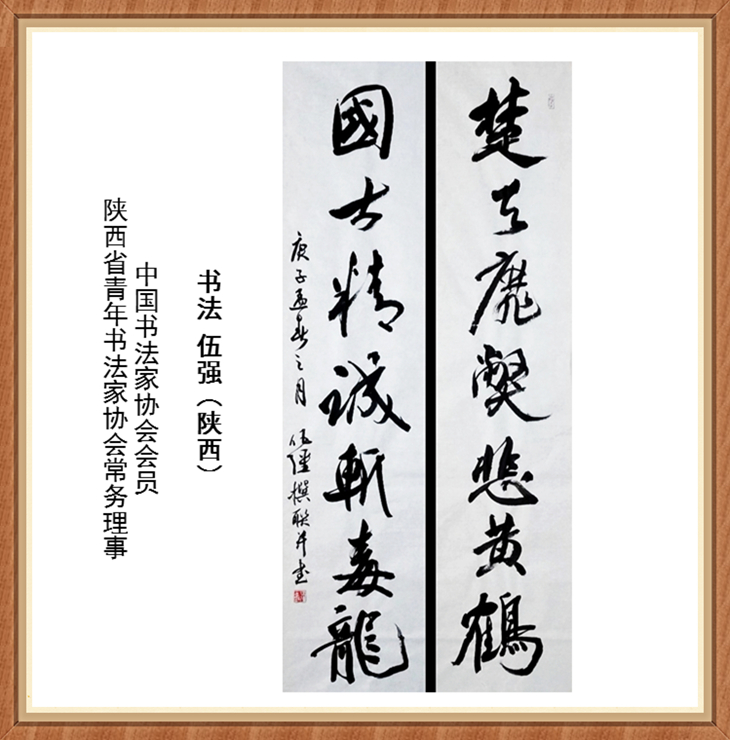 楚天悲黄鶴
國士精誠斬毒龍
庚子孟春之月 伍強撰聯并書
书法 伍强（陕西）
中国书法家协会会员
陕西省青年书法家协会常务理事